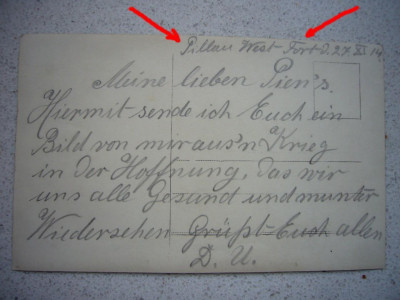 Pillau West Fort d. 27 XI 14
Meine lieben Pien's.
Hiermit sende ich Euch ein
Bild von mir aus'n Krieg
in der Hoffnung, das wir
uns alle Gesund und munter
Wiedersehen Grüßt Euch allen
D. U.